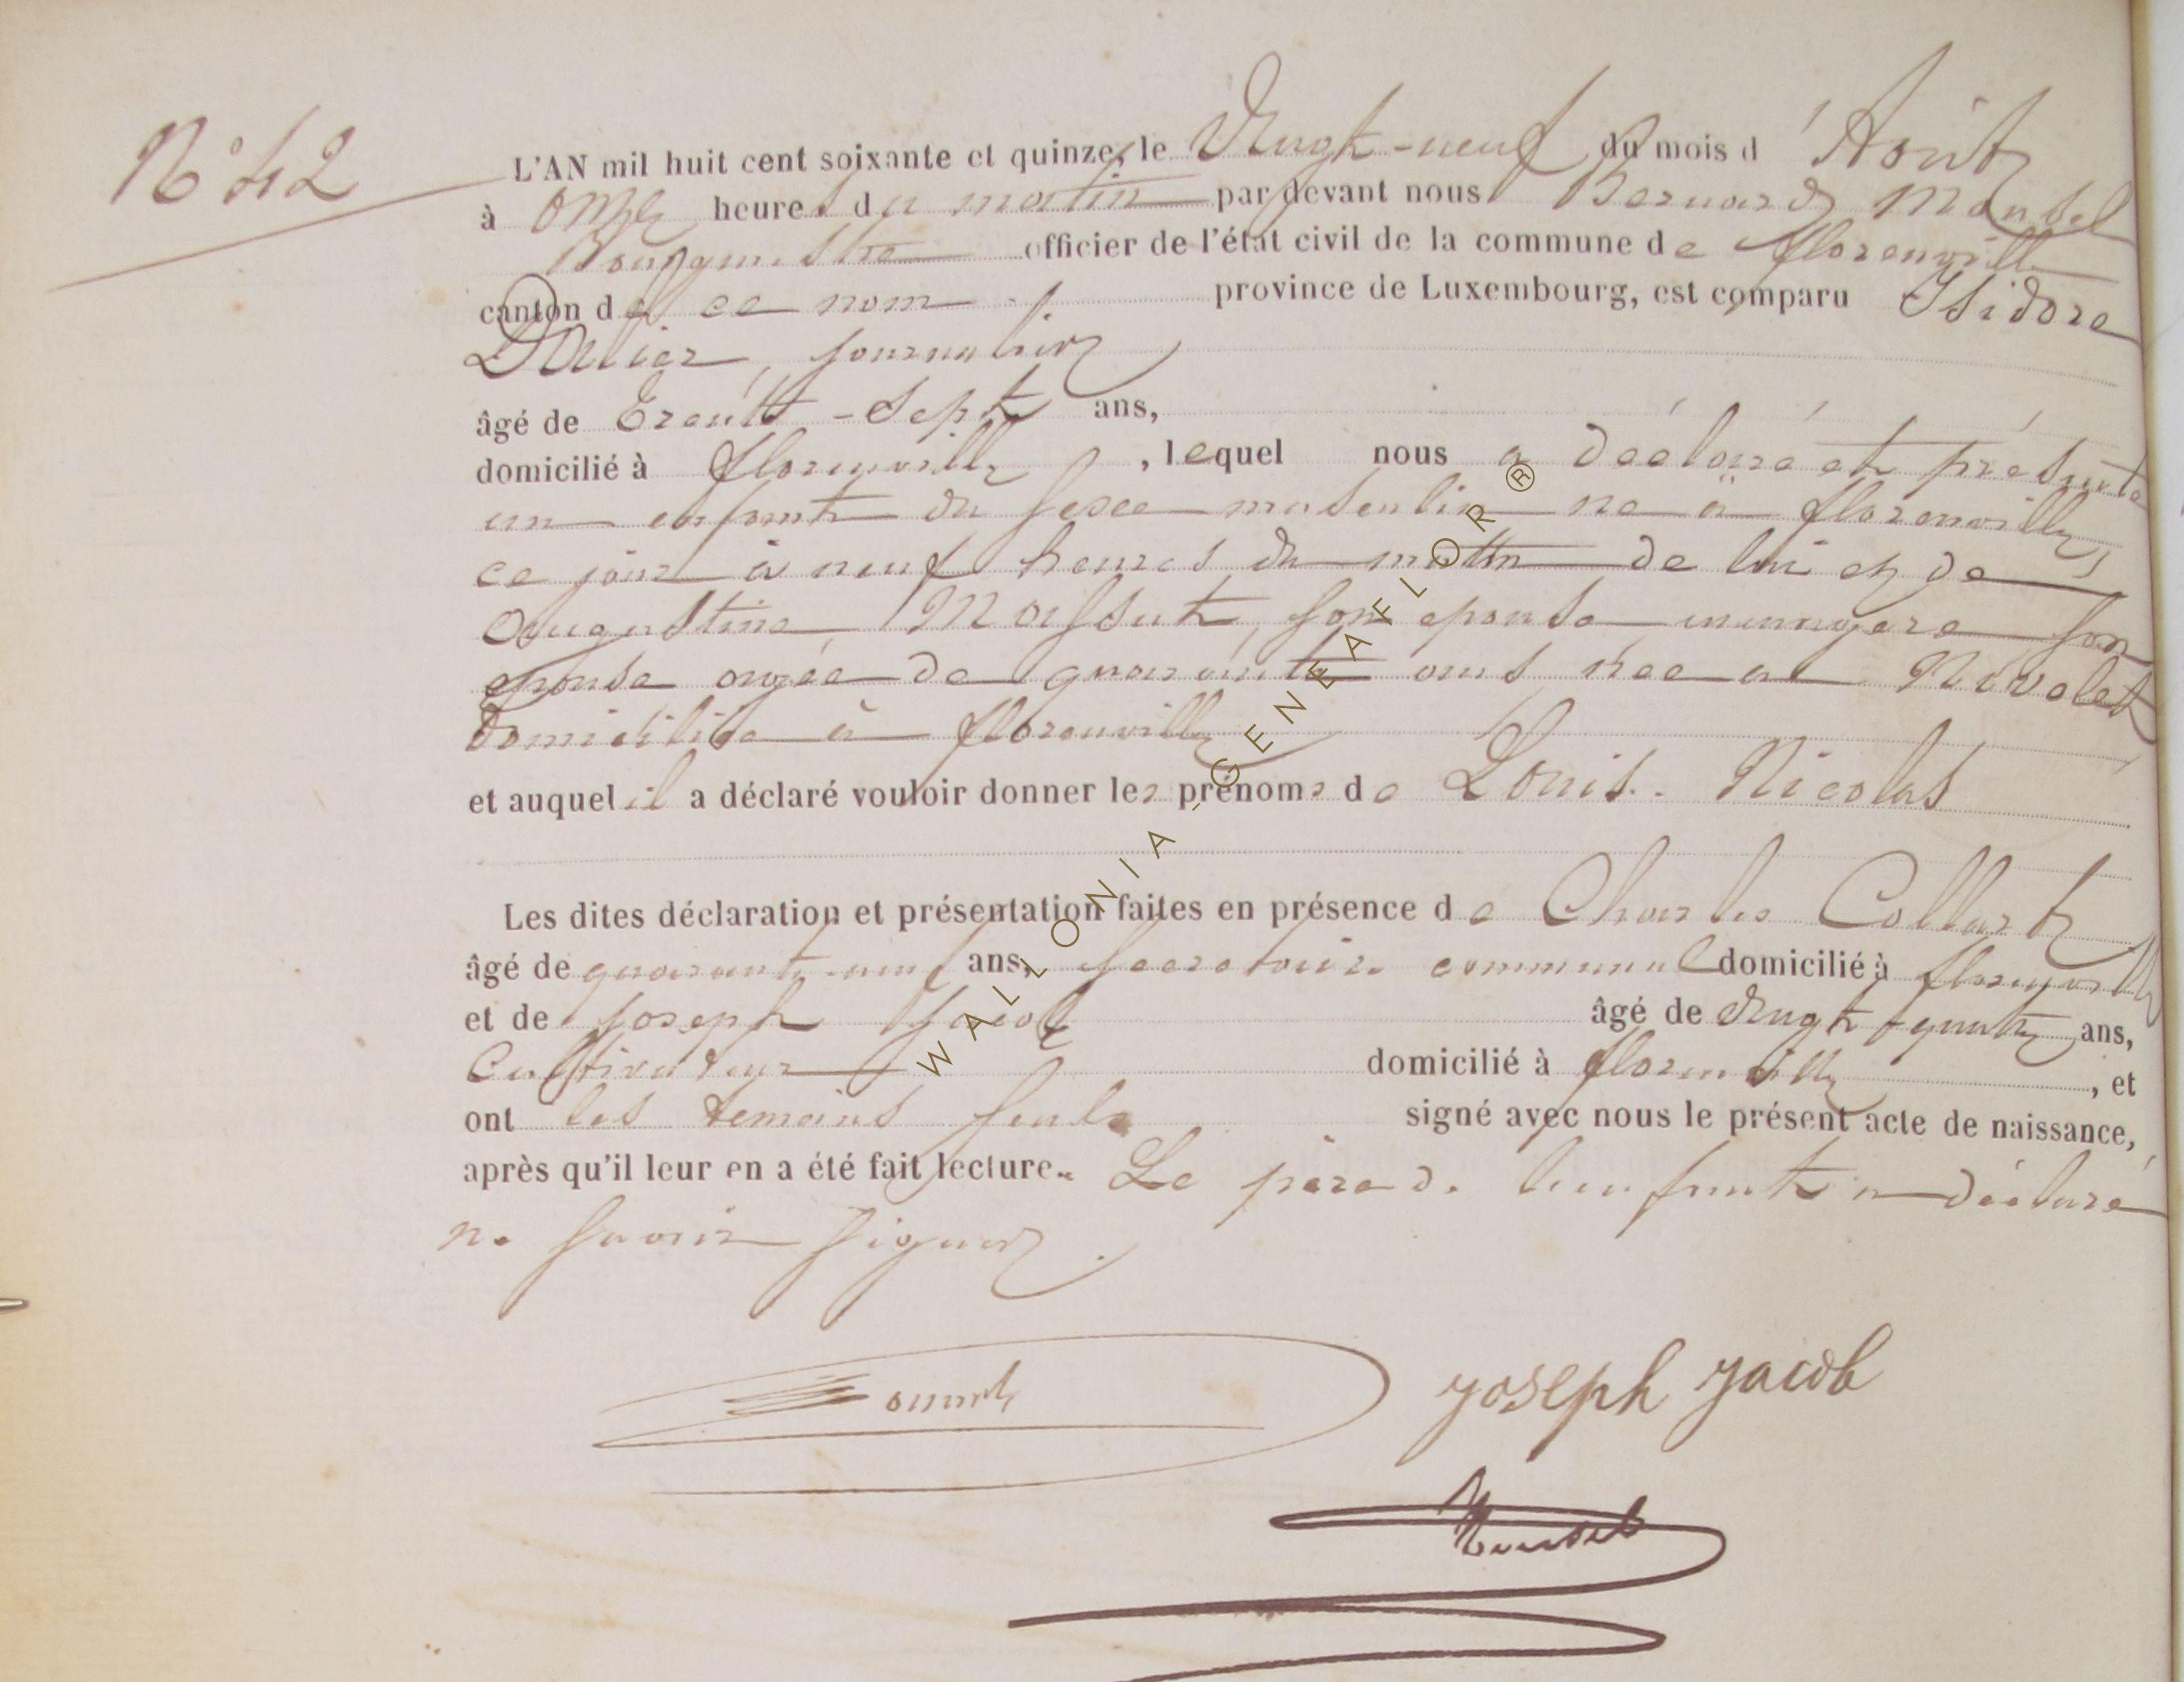 N° 42
L'AN mil huit cent soixante et quinze, le Vingt-neuf du mois d'Août
à Onze heures du matin par devant nous Bernard Mausel
Bourgmestre officier de l'état civil de la commune de florenville
canton de ce nom province de Luxembourg, est comparu Isidore
journalier
âgé de Trente-Sept ans,
domicilié à florenville, lequel nous a déclaré et présenté
un enfant du sexe masculin né à florenville,
ce jour à neuf heures du matin de lui et de
Augustine Massut, son épouse ménagère son
épouse agée de quarante ans née a
domiciliée à florenville
et auquel il a déclaré vouloir donner les prénoms de Louis. Nicolas
Les dites déclaration et présentation faites en présence de Charles Collart
âgé de quarante-neuf ans, secretaire communal domicilié à florenville
et de Joseph Jacob âgé de Vingt-quatre ans,
Cultivateur domicilié à florenville, et
ont les temoins seuls signé avec nous le présent acte de naissance,
après qu'il leur en a été fait lecture. Le père de l'enfant a déclaré
ne savoir signer.
Joseph Jacob
Mausel
WALLONIA - GENEAFLOR ®